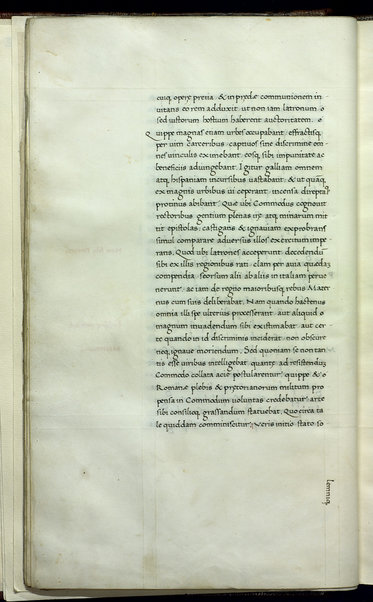 cuiq, operę prętia, & in prędae communionem in
uitans eo rem adduxit ut non iam latronum
sed iustorum hostium haberent auctoritatem.
Quippe magnas etiam urbes occupabant, effractisq,
per uim carceribus captiuos sine discrimine om
nes uinculis eximebant, eosq, sibi impunitate ac
beneficiis adiungebant. Igitur galliam omnem
atq, hispaniam incursibus uastabant. & ut quaq,
ex magnis urbibus ui ceperant, incensa direptaq
protinus abibant. Quae ubi Commodus cognouit
rectoribus gentium plenas irę atq, minarum mit
tit epistolas, castigans & ignauiam exprobrans
simul comparare aduersus illos exercitum impe
rans. Quod ubi latrones acceperunt, decedendū
sibi ex illis regionibus rati, clam per auia quędaʒ
compendia seorsum alii ab aliis in italiam perue
nerunt, ac iam de regno maioribusq, rebus Mater
nus cum suis deliberabat. Nam quando hactenus
omnia illi spe ulterius processerant, aut aliquid
magnum inuadendum sibi existimabat, aut cer
te quando in id discriminis inciderat, non obscure
neq, ignaue moriendum. Sed quoniam se non tan
tis esse uiribus intelligebat, quantę ad resistenduʒ
Commodo collata acie postularentur, quippe &
Romanę plebis & prętorianorum militum pro
pensa in Commodum uoluntas credebatur, arte
sibi consilioq, grassandum statuebat. Quo circa ta
le quiddam comminiscitur. Veris initio stato so
lemniq,